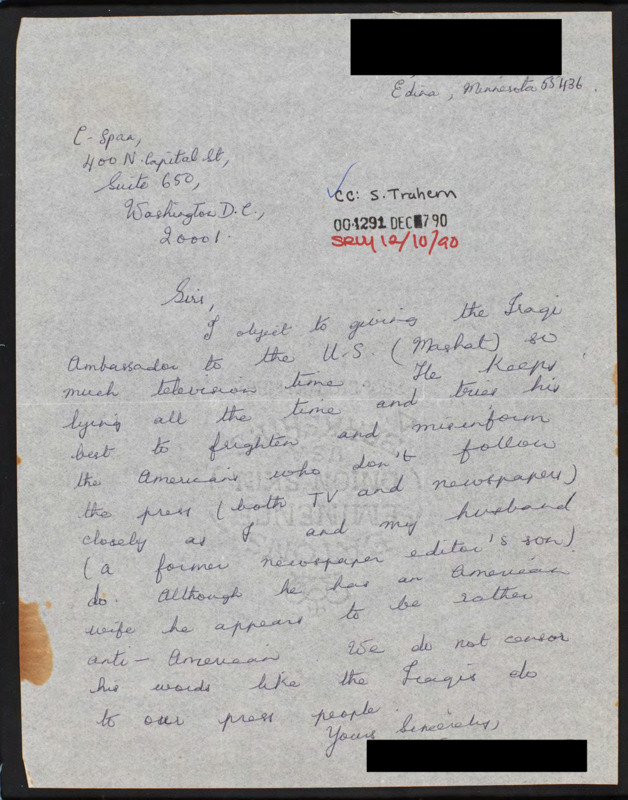 Edina, Minnesota 55436.
C-Span,
400 N. Capital St,
Suite 650,
Washington D.C.,
20001.
CC: S. Trahern
004291 DEC 7 90
SRW 12/10/90
Sirs,
I object to giving the Iraqi
Ambassador to the U.S (Mashat) so
much television time. He keeps
lying all the time and tries his
best to frighten and misinform
the Americans who don't follow
the press (both TV and newspapers)
closely as I and my husband
(a former newspaper editor's son)
do. Although he has an American
wife he appears to be rather
anti-American. We do not censor
his words like the Iraqis do
to our press people.
Yours Sincerely,